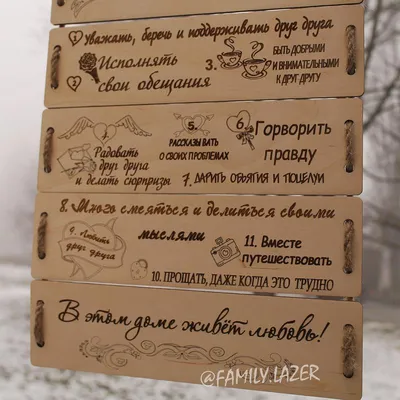 1 Уважать, беречь и поддерживать друг друга
2 Исполнять
свои обещания
3.
БЫТЬ ДОБРЫМИ
И ВНИМАТЕЛЬНЫМИ
К ДРУГ ДРУГУ
Радовать
друг друга
и делать сюрпризы
5.
РАССКАЗЫВАТЬ
О СВОИХ ПРОБЛЕМАХ
6. Горворить
правду
7. ДАРИТЬ ОБЪЯТИЯ И ПОЦЕЛУИ
8. Много смеяться и делиться своими
мыслями
9. Любить
друг друга
11. Вместе
путешествовать
10. ПРОЩАТЬ, ДАЖЕ КОГДА ЭТО ТРУДНО
В этом доме живёт любовь!
@FAMILY.LAZER